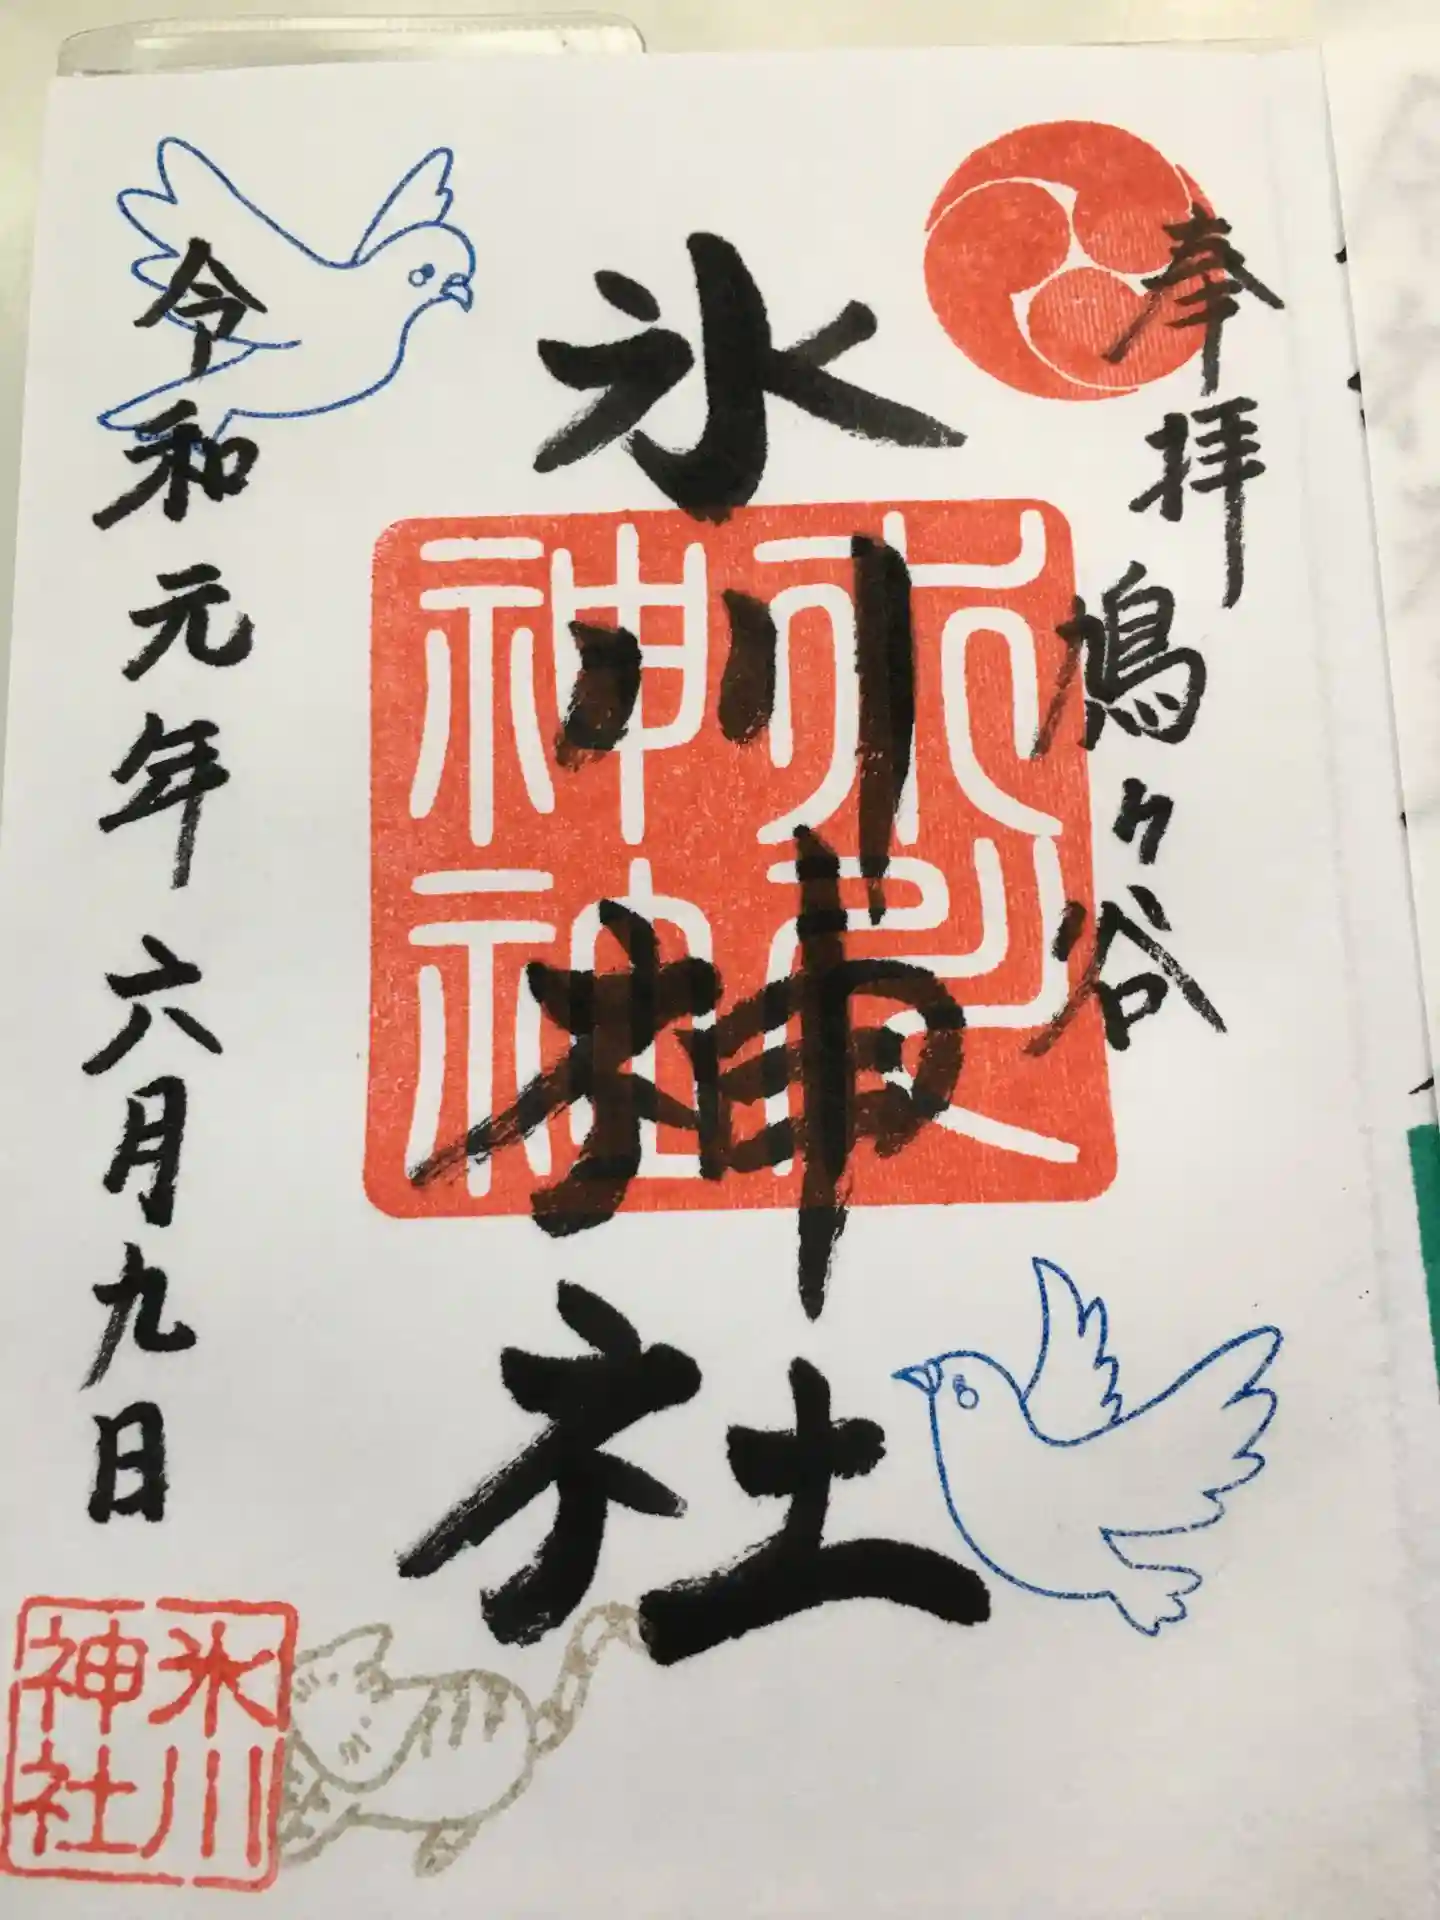 奉拝 鳩ヶ谷
氷川神社
令和元年六月九日
氷川
神社